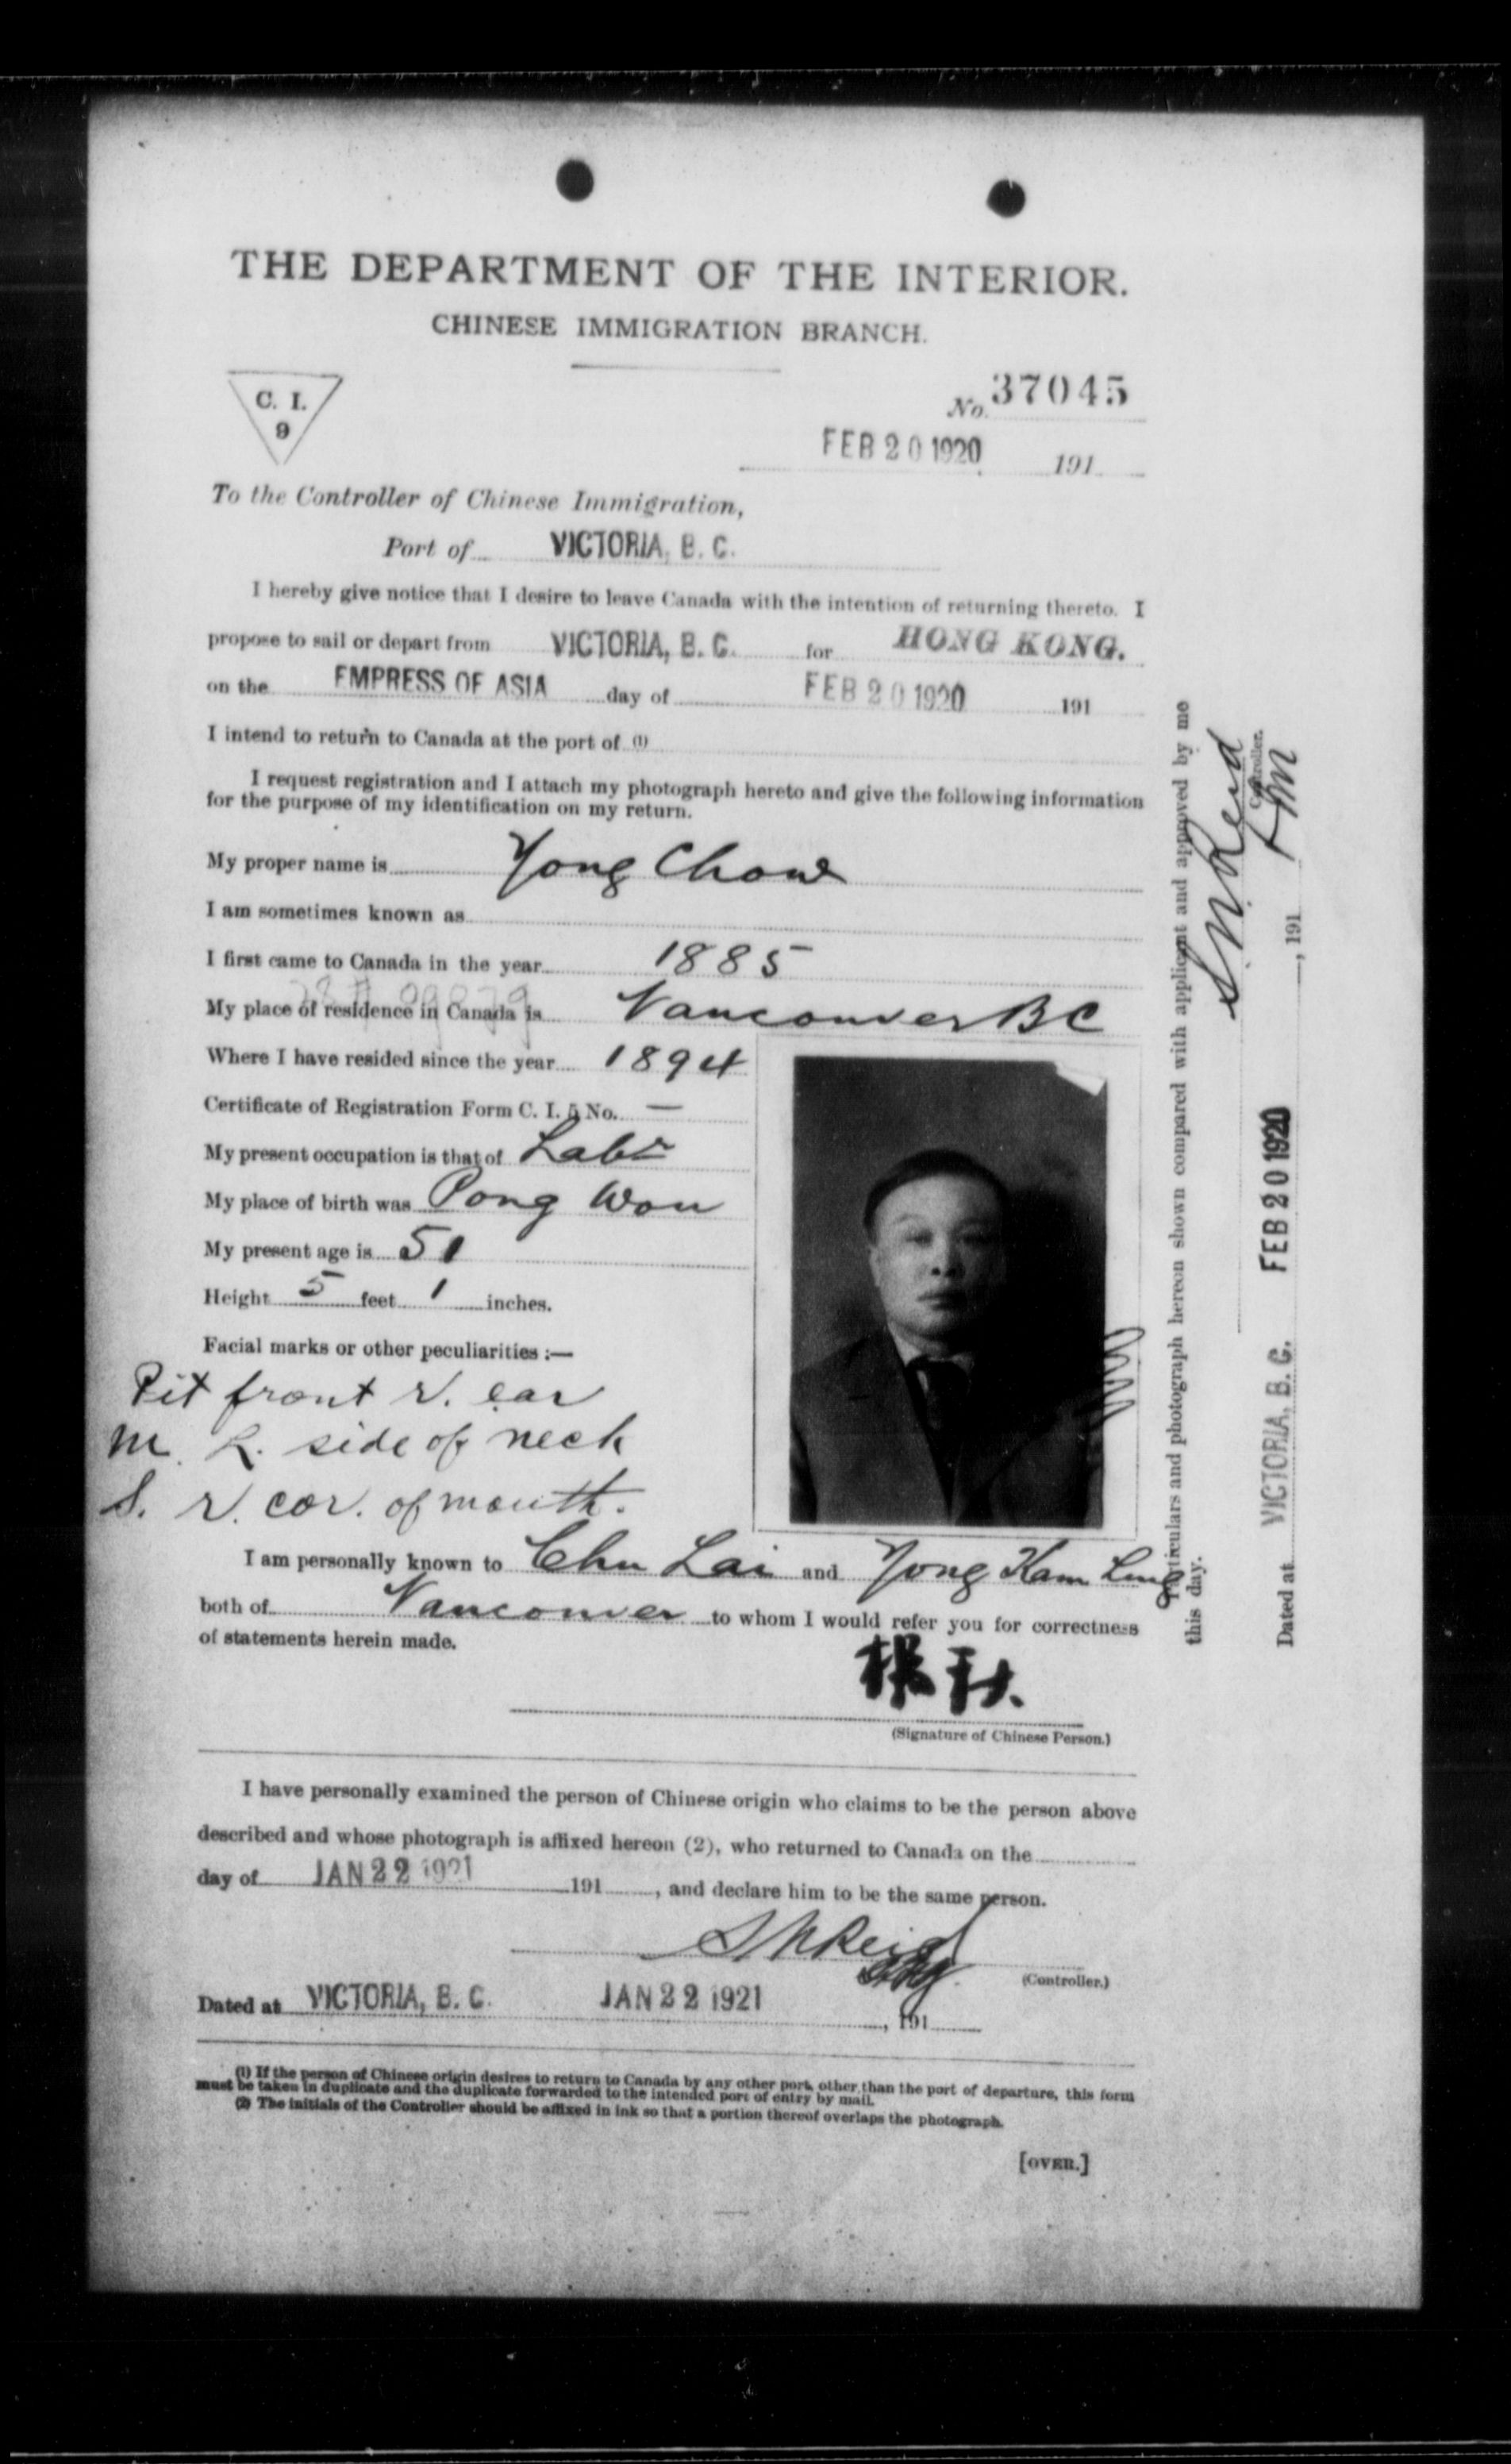 THE DEPARTMENT OF THE INTERIOR.
CHINESE IMMIGRATION BRANCH.
C. I.
9
No. 37045
FEB 20 1920 191
To the Controller of Chinese Immigration,
Port of VICTORIA, B. C.
I hereby give notice that I desire to leave Canada with the intention of returning thereto. I
propose to sail or depart from VICTORIA, B. C. for HONG KONG.
on the EMPRESS OF ASIA day of FEB 20 1920 191
I intend to return to Canada at the port of (1)
I request registration and I attach my photograph hereto and give the following information
for the purpose of my identification on my return.
My proper name is Yong Chow
I am sometimes known as
I first came to Canada in the year 1885
My place of residence in Canada is Vancouver BC
Where I have resided since the year 1894
Certificate of Registration Form C. I. 5 No. —
My present occupation is that of Labr
My place of birth was Pong Won
My present age is 51
Height 5 feet 1 inches.
Facial marks or other peculiarities :—
Pit front r. ear
M. R. side of neck
S. r. cor. of mouth.
I am personally known to Chu Lai and Yong Kam Lung
both of Vancouver to whom I would refer you for correctness
of statements herein made.
(Signature of Chinese Person.)
I have personally examined the person of Chinese origin who claims to be the person above
described and whose photograph is affixed hereon (2), who returned to Canada on the
day of JAN 22 1921 191 , and declare him to be the same person.
S N Reid
(Controller.)
Dated at VICTORIA, B. C. JAN 22 1921 , 191
(1) If the person of Chinese origin desires to return to Canada by any other port, other than the port of departure, this form
must be taken in duplicate and the duplicate forwarded to the intended port of entry by mail.
(2) The initials of the Controller should be affixed in ink so that a portion thereof overlaps the photograph.
[OVER.]
Particulars and photograph hereon shown compared with applicant and approved by me
this day.
S. N. Reid
Controller.
Dated at VICTORIA, B. C. FEB 20 1920 , 191